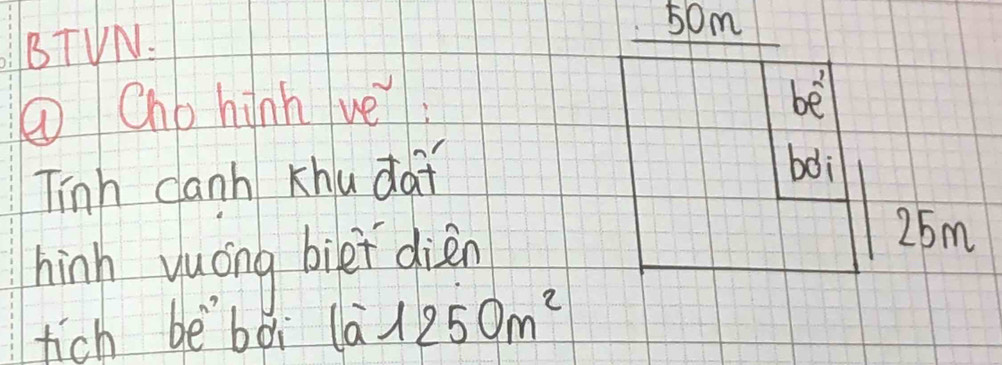 BTVN:
① Cho hình vẽ:
Tính cạnh khu đất
hình vuông biết diện
tích bể bơi là 1250m²
50m
bể
bơi
25m